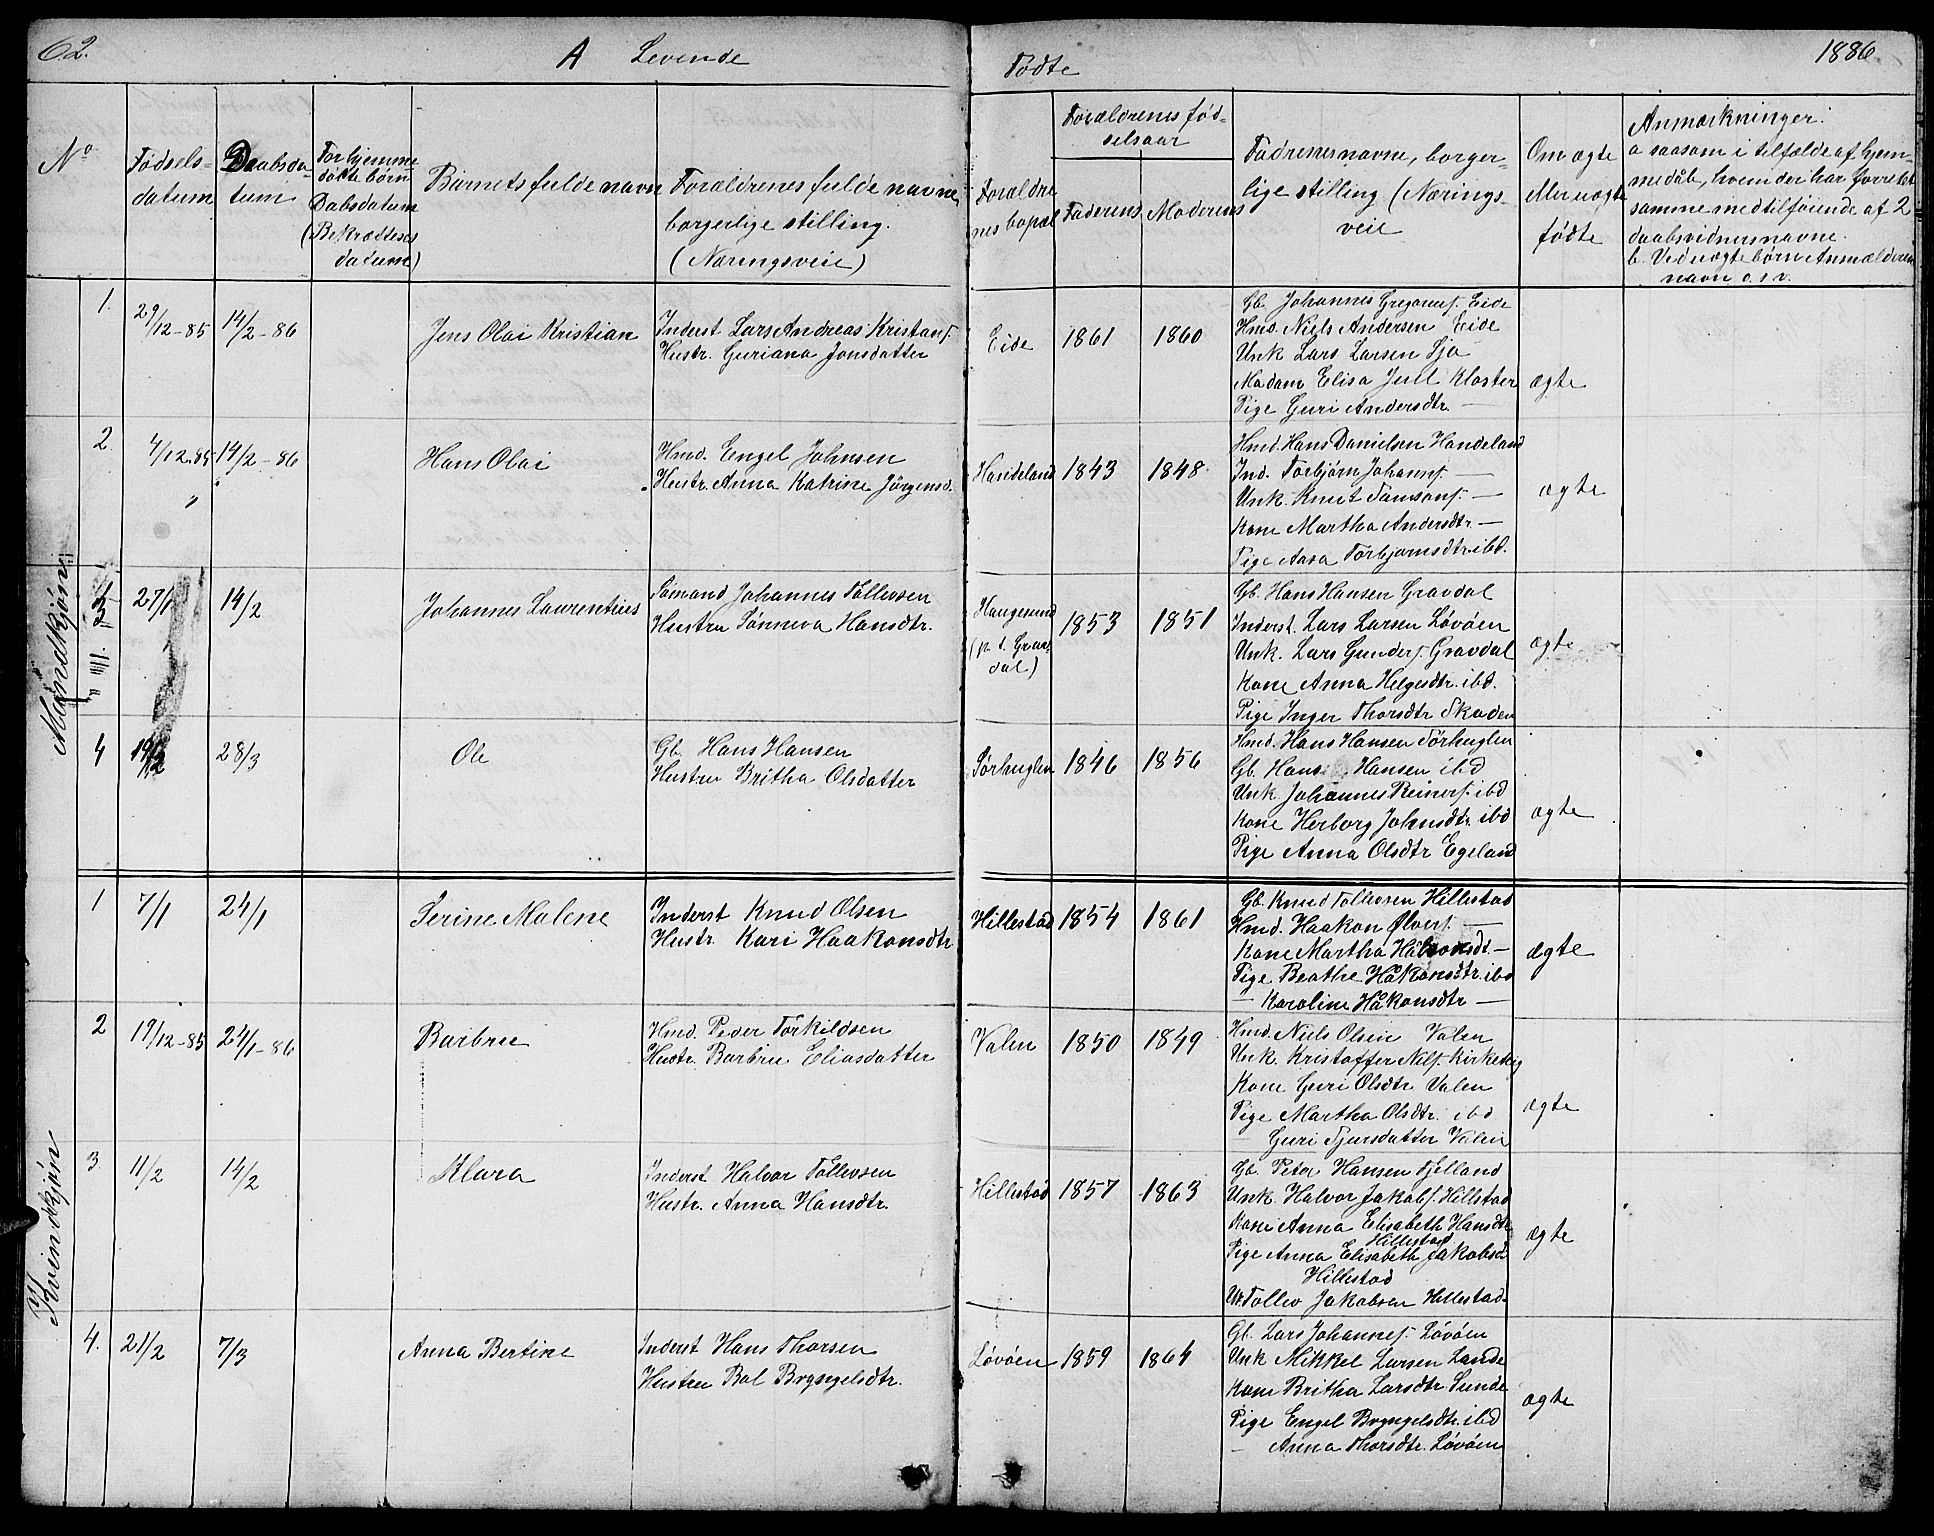 62.
A Levende
Fødte
1886
No
Fødsels-
datum
Daabsda-
tum
For hjemme
døbte børn
Daabsdatum
(Bekræftises
datum)
Barnets fulde navn
Forældrenes fulde navne,
borgerlige stilling.
(Næringsveie)
Forældre
nes bopæl
Forældrenes fød-
selsaar
Faderens
Moderens
Fadrenes navne, borger-
lige stilling (Nærings-
veie
Om ægte
eller uægte
fødte
Anmærkninger.
a saasom i tilfælde af hjem-
medåb, hvem der har forrettet
samme med tilføiende af 2
daabsvidners navne.
b. Ved uægte børn Anmælderens
navn o.s.v.
Mandkjøn
1. 29/12-85 14/2-86 Jens Olai Kristian
Inderst Lars Andreas Kristians.
Hustr. Guriana Jonsdatter
Eide 1861 1860
Gb. Johannes Gregoriusf. Eide
Hmd. Niels Andersen Eide
Unk Lars Larsen Sjo
Madam Elisa Juul Kloster
Pige Guri Andersdtr. —
ægte
2 4/12.85 14/2-86 Hans Olai
Hmd. Engel Johnsen
Hustr. Anna Katrine Jørgensd.
Handeland 1843 1848
Hmd. Hans Danielsen Handeland
Ind. Torbjørn Johannsf. —
Unk. Knut Samsonf. —
Kone Martha Andersdtr. —
Pige Aasa Torbjørnsdtr. ibd.
ægte
3 27/1 14/2 Johannes Laurentius
Sømand Johannes Tollevsen
Hustru Sønneva Hansdtr.
Haugesund
(p.t. Grav-
dal) 1853 1851
Gb. Hans Hansen Gravdal
Inderst. Lars Larsen Løvøen
Unk. Lars Gunders. Gravdal
Kone Anna Helgesdtr. ibd.
Pige Inger Thorsdtr Skaden
ægte
4 19/2 28/3 Ole
Gb. Hans Hansen
Hustru Britha Olsdatter
Sørhuglen 1846 1856
Hmd. Hans Hansen Sørhuglen
Gb. Hans Hansen ibd
Unk. Johannes Reinerf. ibd
Kone Herborg Johnsdtr. ibd
Pige Anna Olsdtr Egeland
ægte
Kvindekjøn
1 7/1 24/1 Serine Malene
Inderst Knud Olsen
Hustr. Kari Haakonsdtr
Hillestad 1854 1861
Gb. Knud Tollevsen Hillestad
Hmd. Haakon Ølverf. —
Kone Martha Halvorsdt. —
Pige Beathe Håkonsdtr. ibd
— Karoline Håkonsdtr —
ægte
2 19/12-85 24/1-86 Barbru
Hmd. Peder Torkildsen
Hustr. Barbru Eliasdatter
Valen 1850 1849
Hmd. Niels Olsen Valen
Unk. Kristoffer Nilsf. Kirkehøg
Kone Guri Olsdtr Valen
Pige Martha Olsdtr. ibd
— Guri Sjursdatter Valen
ægte
3. 11/2 14/2 Klara
Inderst Halvor Tollevsen
Hustr. Anna Hansdtr.
Hillestad 1857 1863
Gb. Peter Hansen Fjelland
Unk. Halvor Jakobsf. Hillestad
Kone Anna Elisabeth Hansdtr
Hillestad
Pige Anna Elisabeth Jakobsd
Hillestad
Uk. Tollev Jakobsen Hillestad.
ægte
4. 21/2 7/3 Anna Bertine
Inderst Hans Thorsen
Hustru Bol Brynjelsdtr.
Løvøen 1859 1864
Gb. Lars Johannesf. Løvøen
Unk Mikkel Larsen Lande
Kone Britha Larsdtr Sunde
Pige Engel Brynjelsdtr. ibd
— Anna Thorsdtr. Løvøen
ægte